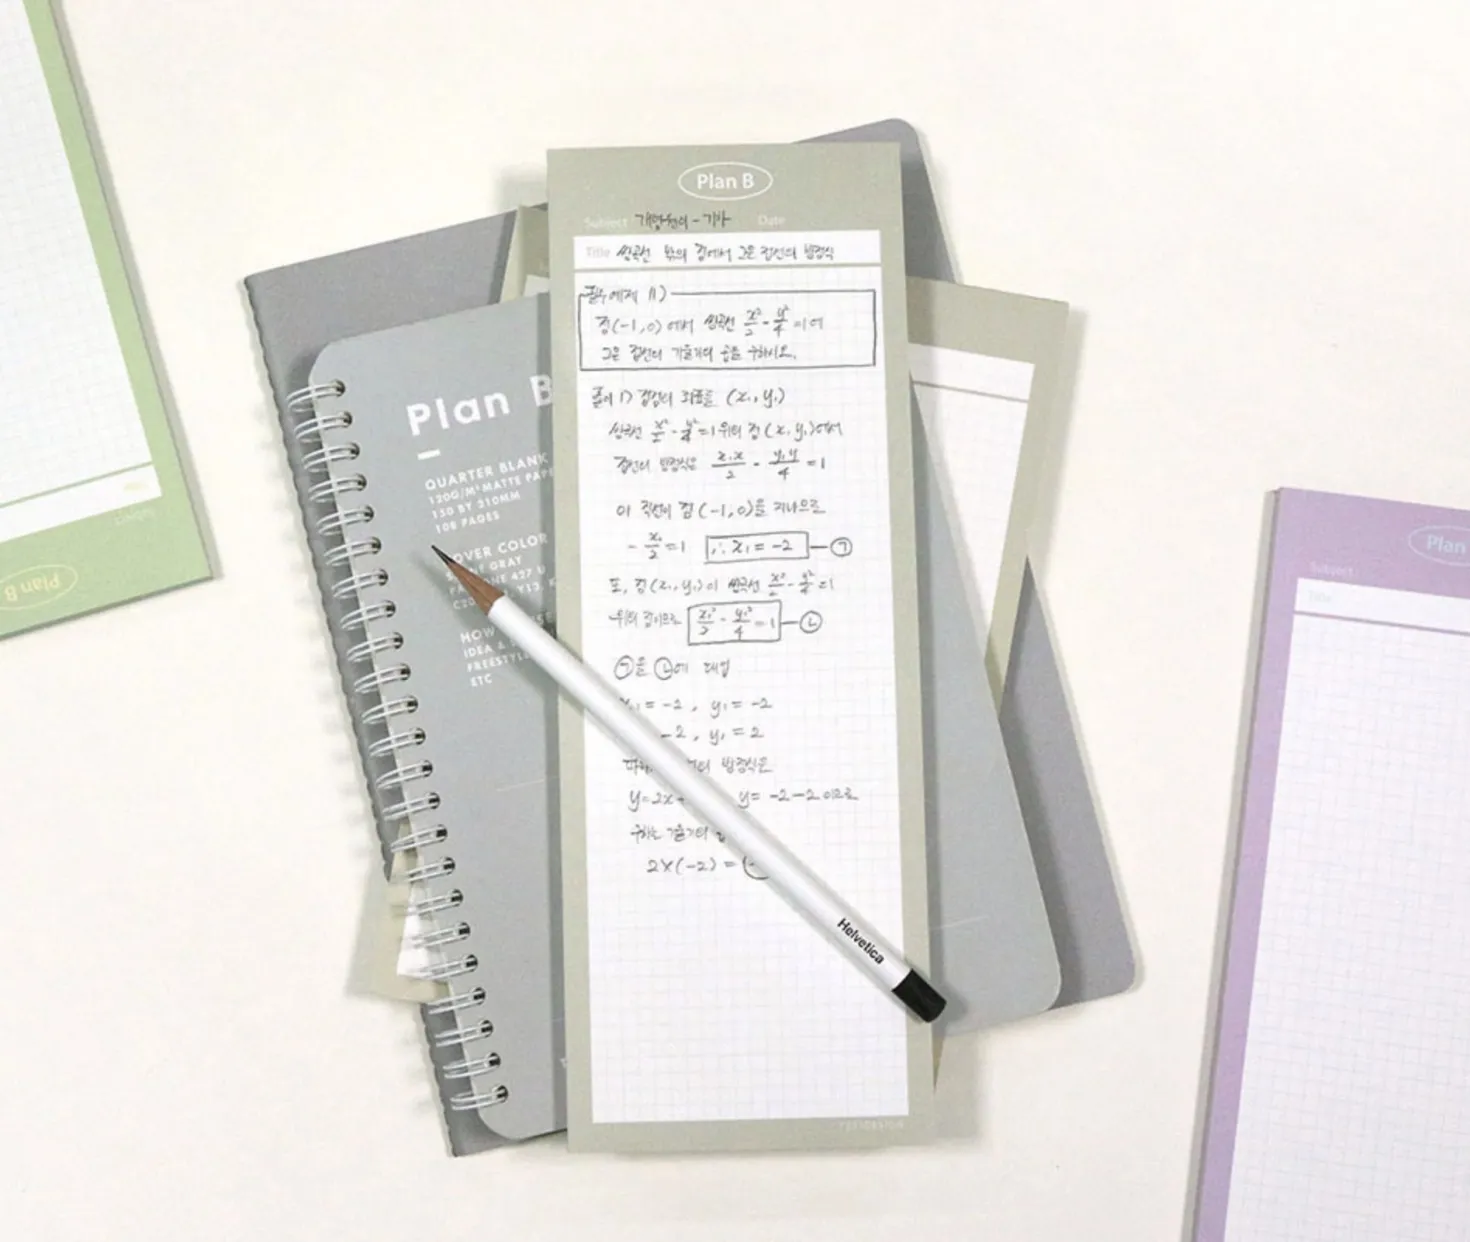 Plan B
Subject 개념원리-기하 Date
Title 쌍곡선 밖의 점에서 그은 접선의 방정식
필수예제 11)
점(-1,0)에서 쌍곡선 x²/2 - y²/4 = 1에
그은 접선의 기울기의 곱을 구하시오.
풀이 1) 접점의 좌표를 (x₁, y₁)
쌍곡선 x²/2 - y²/4 = 1 위의 점(x₁ y₁)에서
접선의 방정식은 x₁x/2 - y₁y/4 = 1
이 직선이 점(-1,0)을 지나므로
- x₁/2 = 1 ∴ x₁ = -2 — ㉠
또, 점(x₁, y₁)이 쌍곡선 x²/2 - y²/4 = 1
위의 점이므로 x₁²/2 - y₁²/4 = 1 — ㉡
㉠을 ㉡에 대입
x₁ = -2, y₁ = -2
-2, y₁ = 2
방정식은
y=2x+ y= -2-2이므로
구하는 기울기의 곱
2×(-2) =
Helvetica
Plan B
QUARTER BLANK
120G/M² MATTE PAPE
150 BY 210MM
108 PAGES
OVER COLOR
GRAY
427 U
HOW
IDEA &
FREESTYLE
ETC
Plan B
Plan
Subject
Title